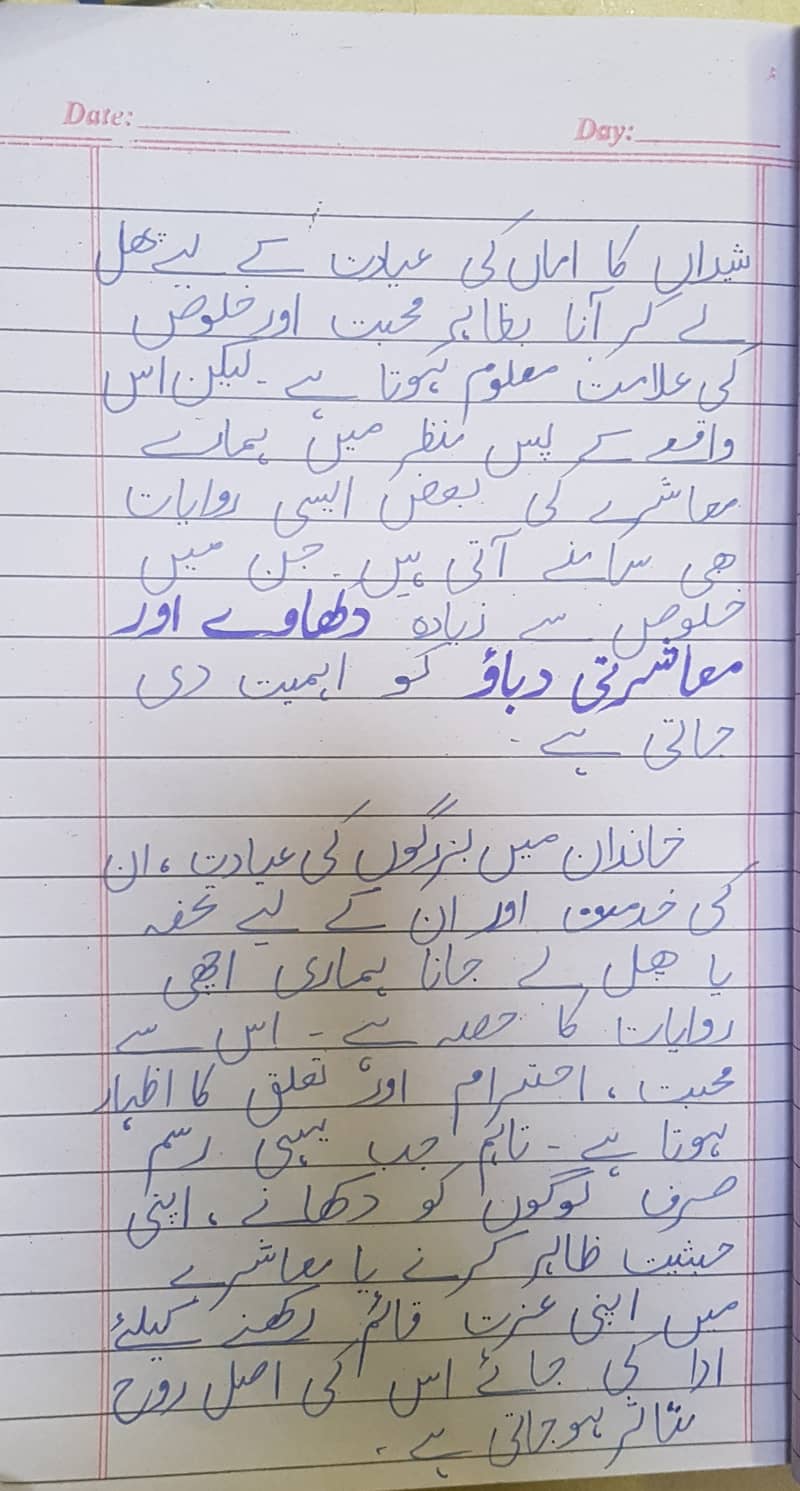 Date:
Day:
شیداں کا اماں کی عیادت کے لیے پھل
لے کر آنا بظاہر محبت اور خلوص
کی علامت معلوم ہوتا ہے۔ لیکن اس
واقعے کے پس منظر میں ہمارے
معاشرے کی بعض ایسی روایات
بھی سامنے آتی ہیں۔ جن میں
خلوص سے زیادہ دکھاوے اور
معاشرتی دباؤ کو اہمیت دی
جاتی ہے۔
خاندان میں بزرگوں کی عیادت ، ان
کی خدمت اور ان کے لیے تحفہ
یا پھل لے جانا ہماری اچھی
روایات کا حصہ ہے۔ اس سے
محبت ، احترام اور تعلق کا اظہار
ہوتا ہے۔ تاہم جب یہی رسم
صرف لوگوں کو دکھانے ، اپنی
حیثیت ظاہر کرنے یا معاشرے
میں اپنی عزت قائم رکھنے کیلئے
ادا کی جائے اس کی اصل روح
متاثر ہو جاتی ہے۔